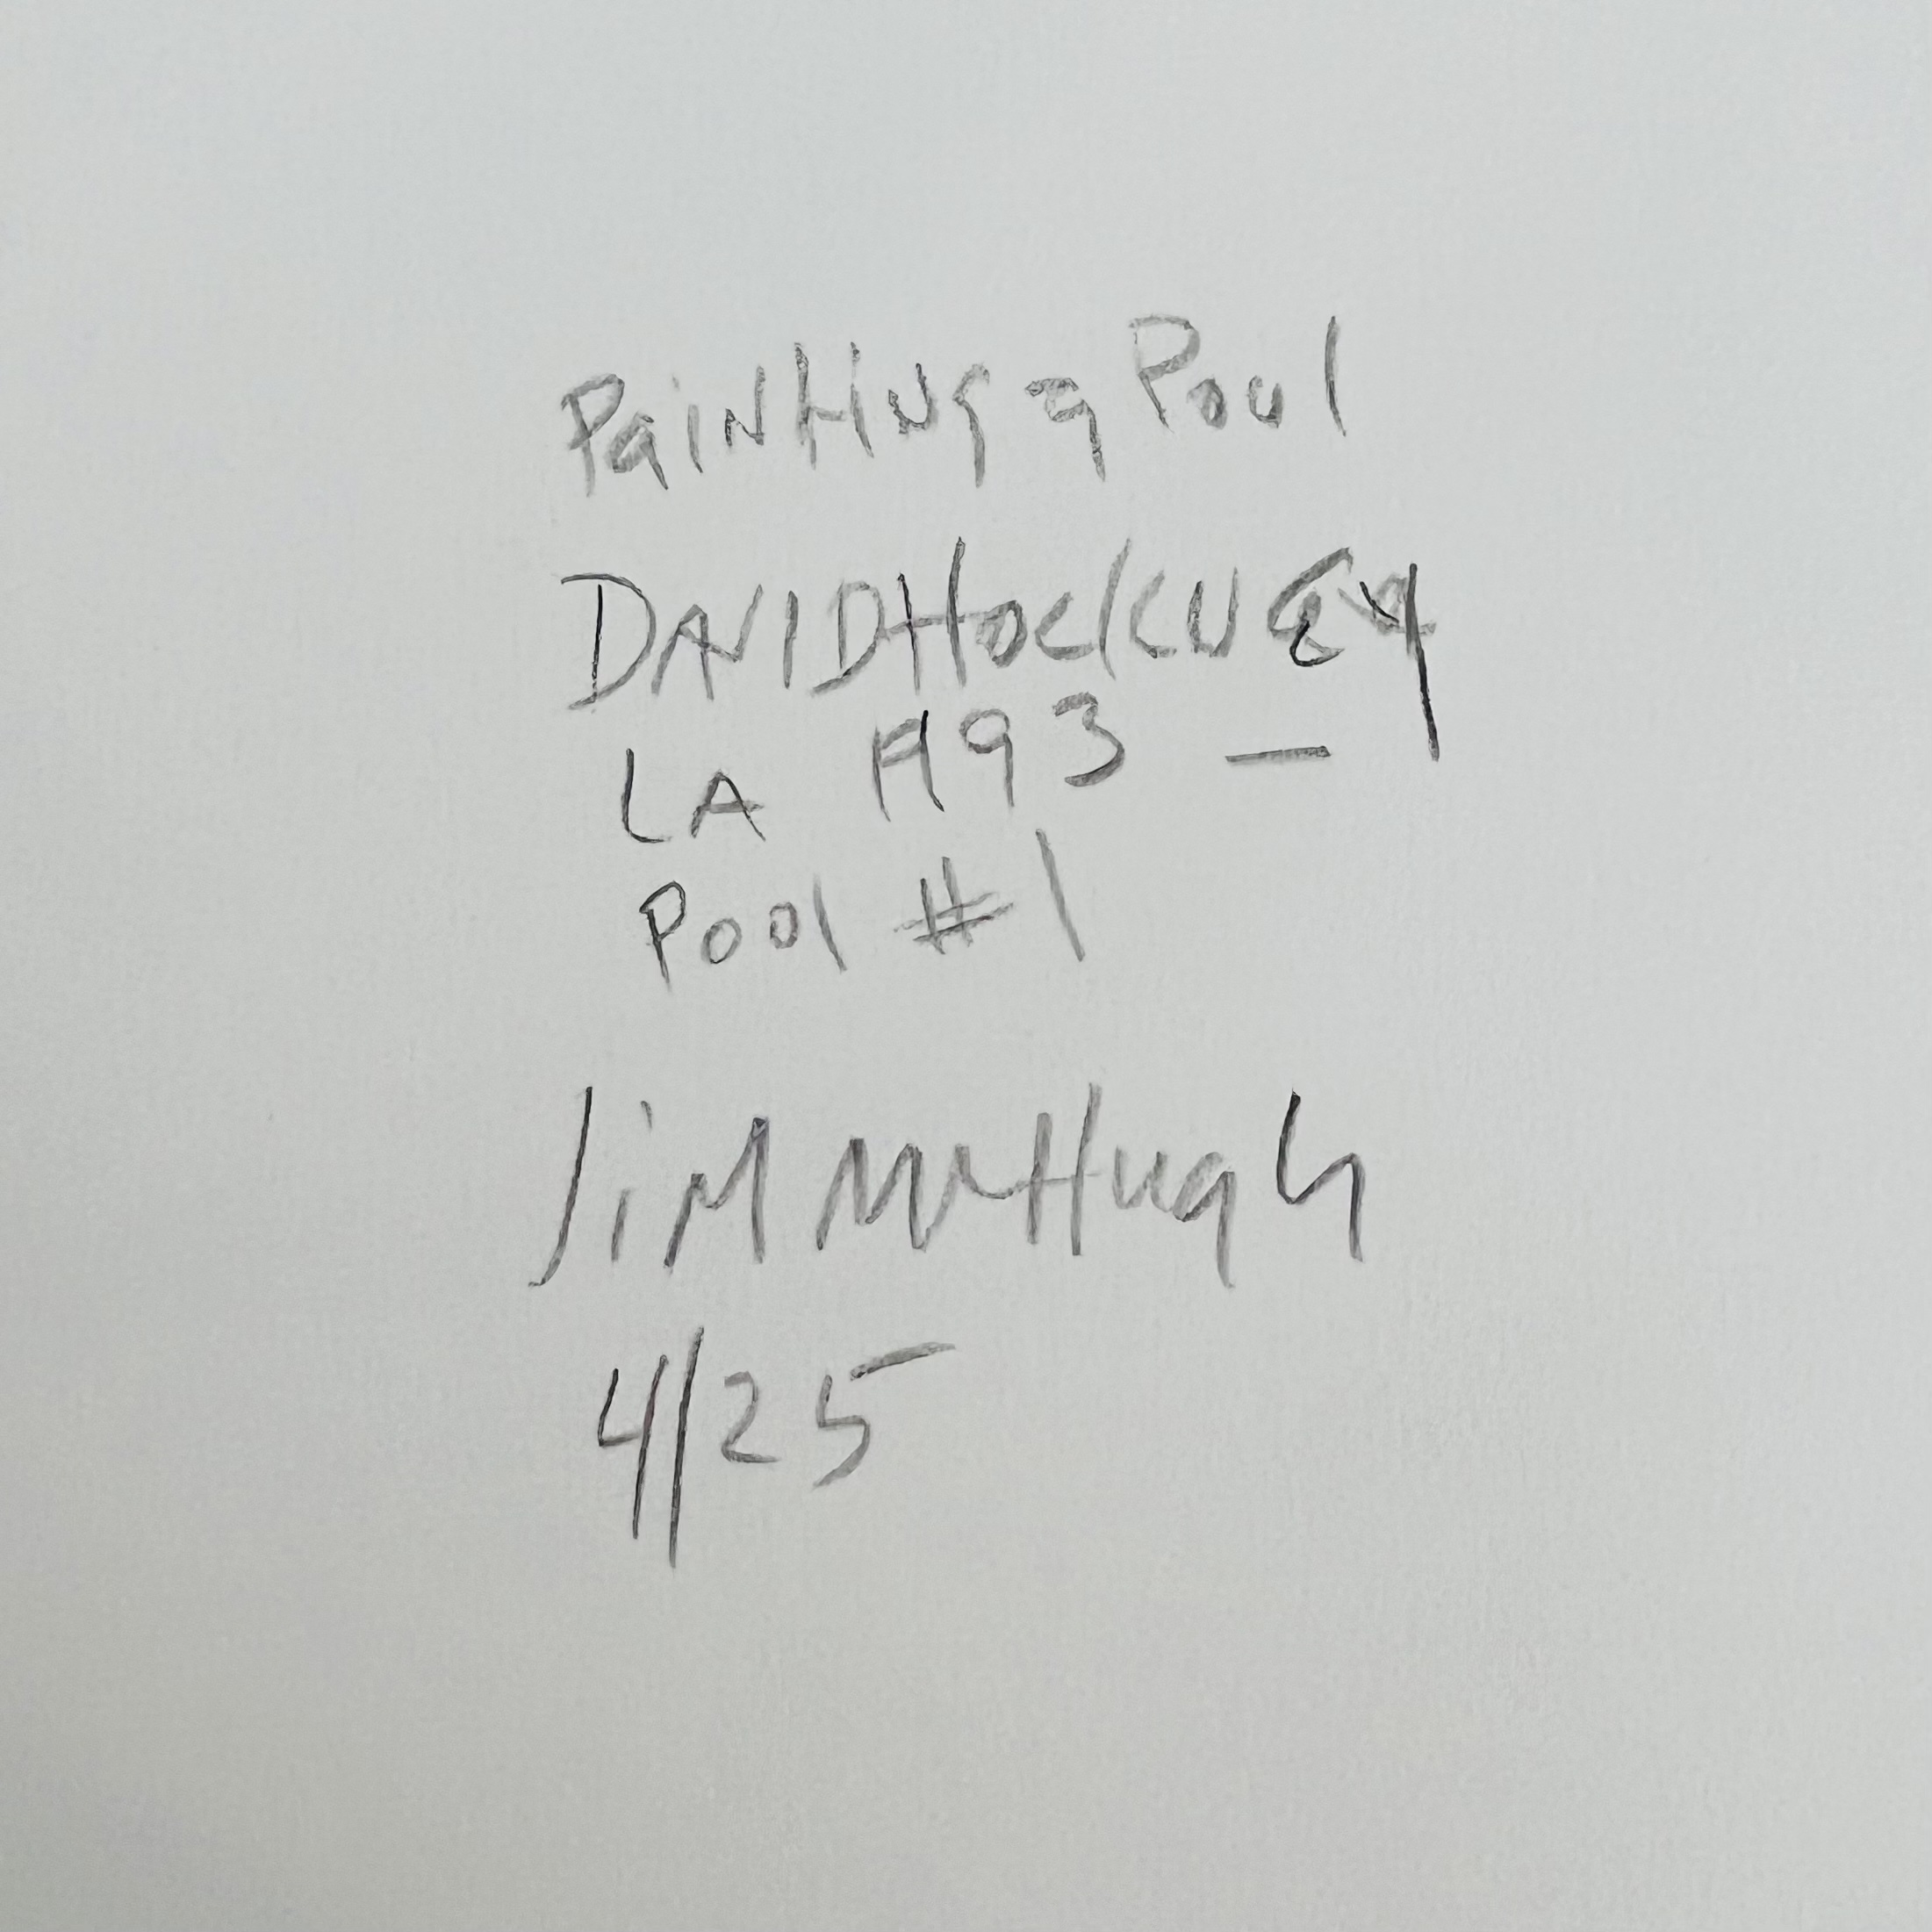 Painting a Pool
DAVID HOCKNEY
LA 1993 —
Pool #1
JiM McHugh
4/25